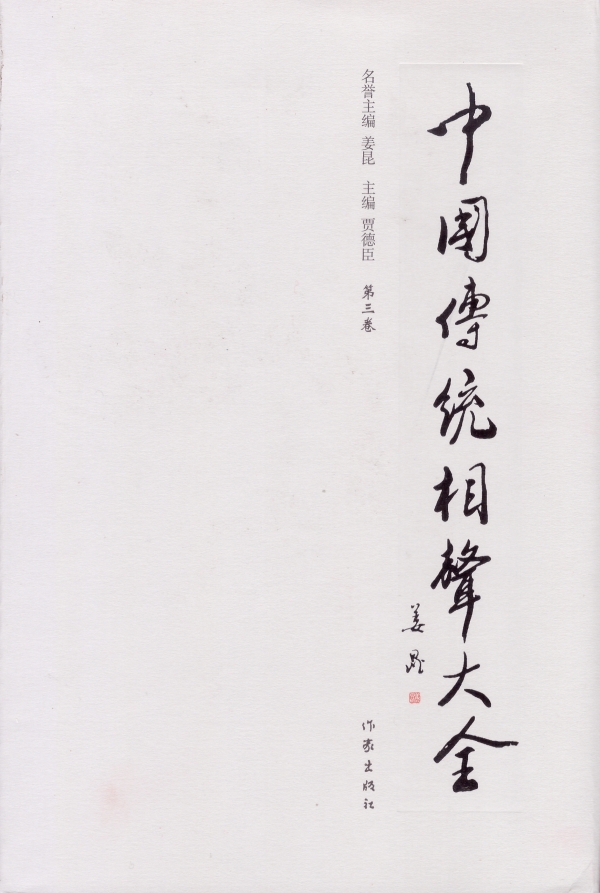 中國傳統相聲大全
姜昆
名誉主编 姜昆 主编 贾德臣 第三卷
作家出版社